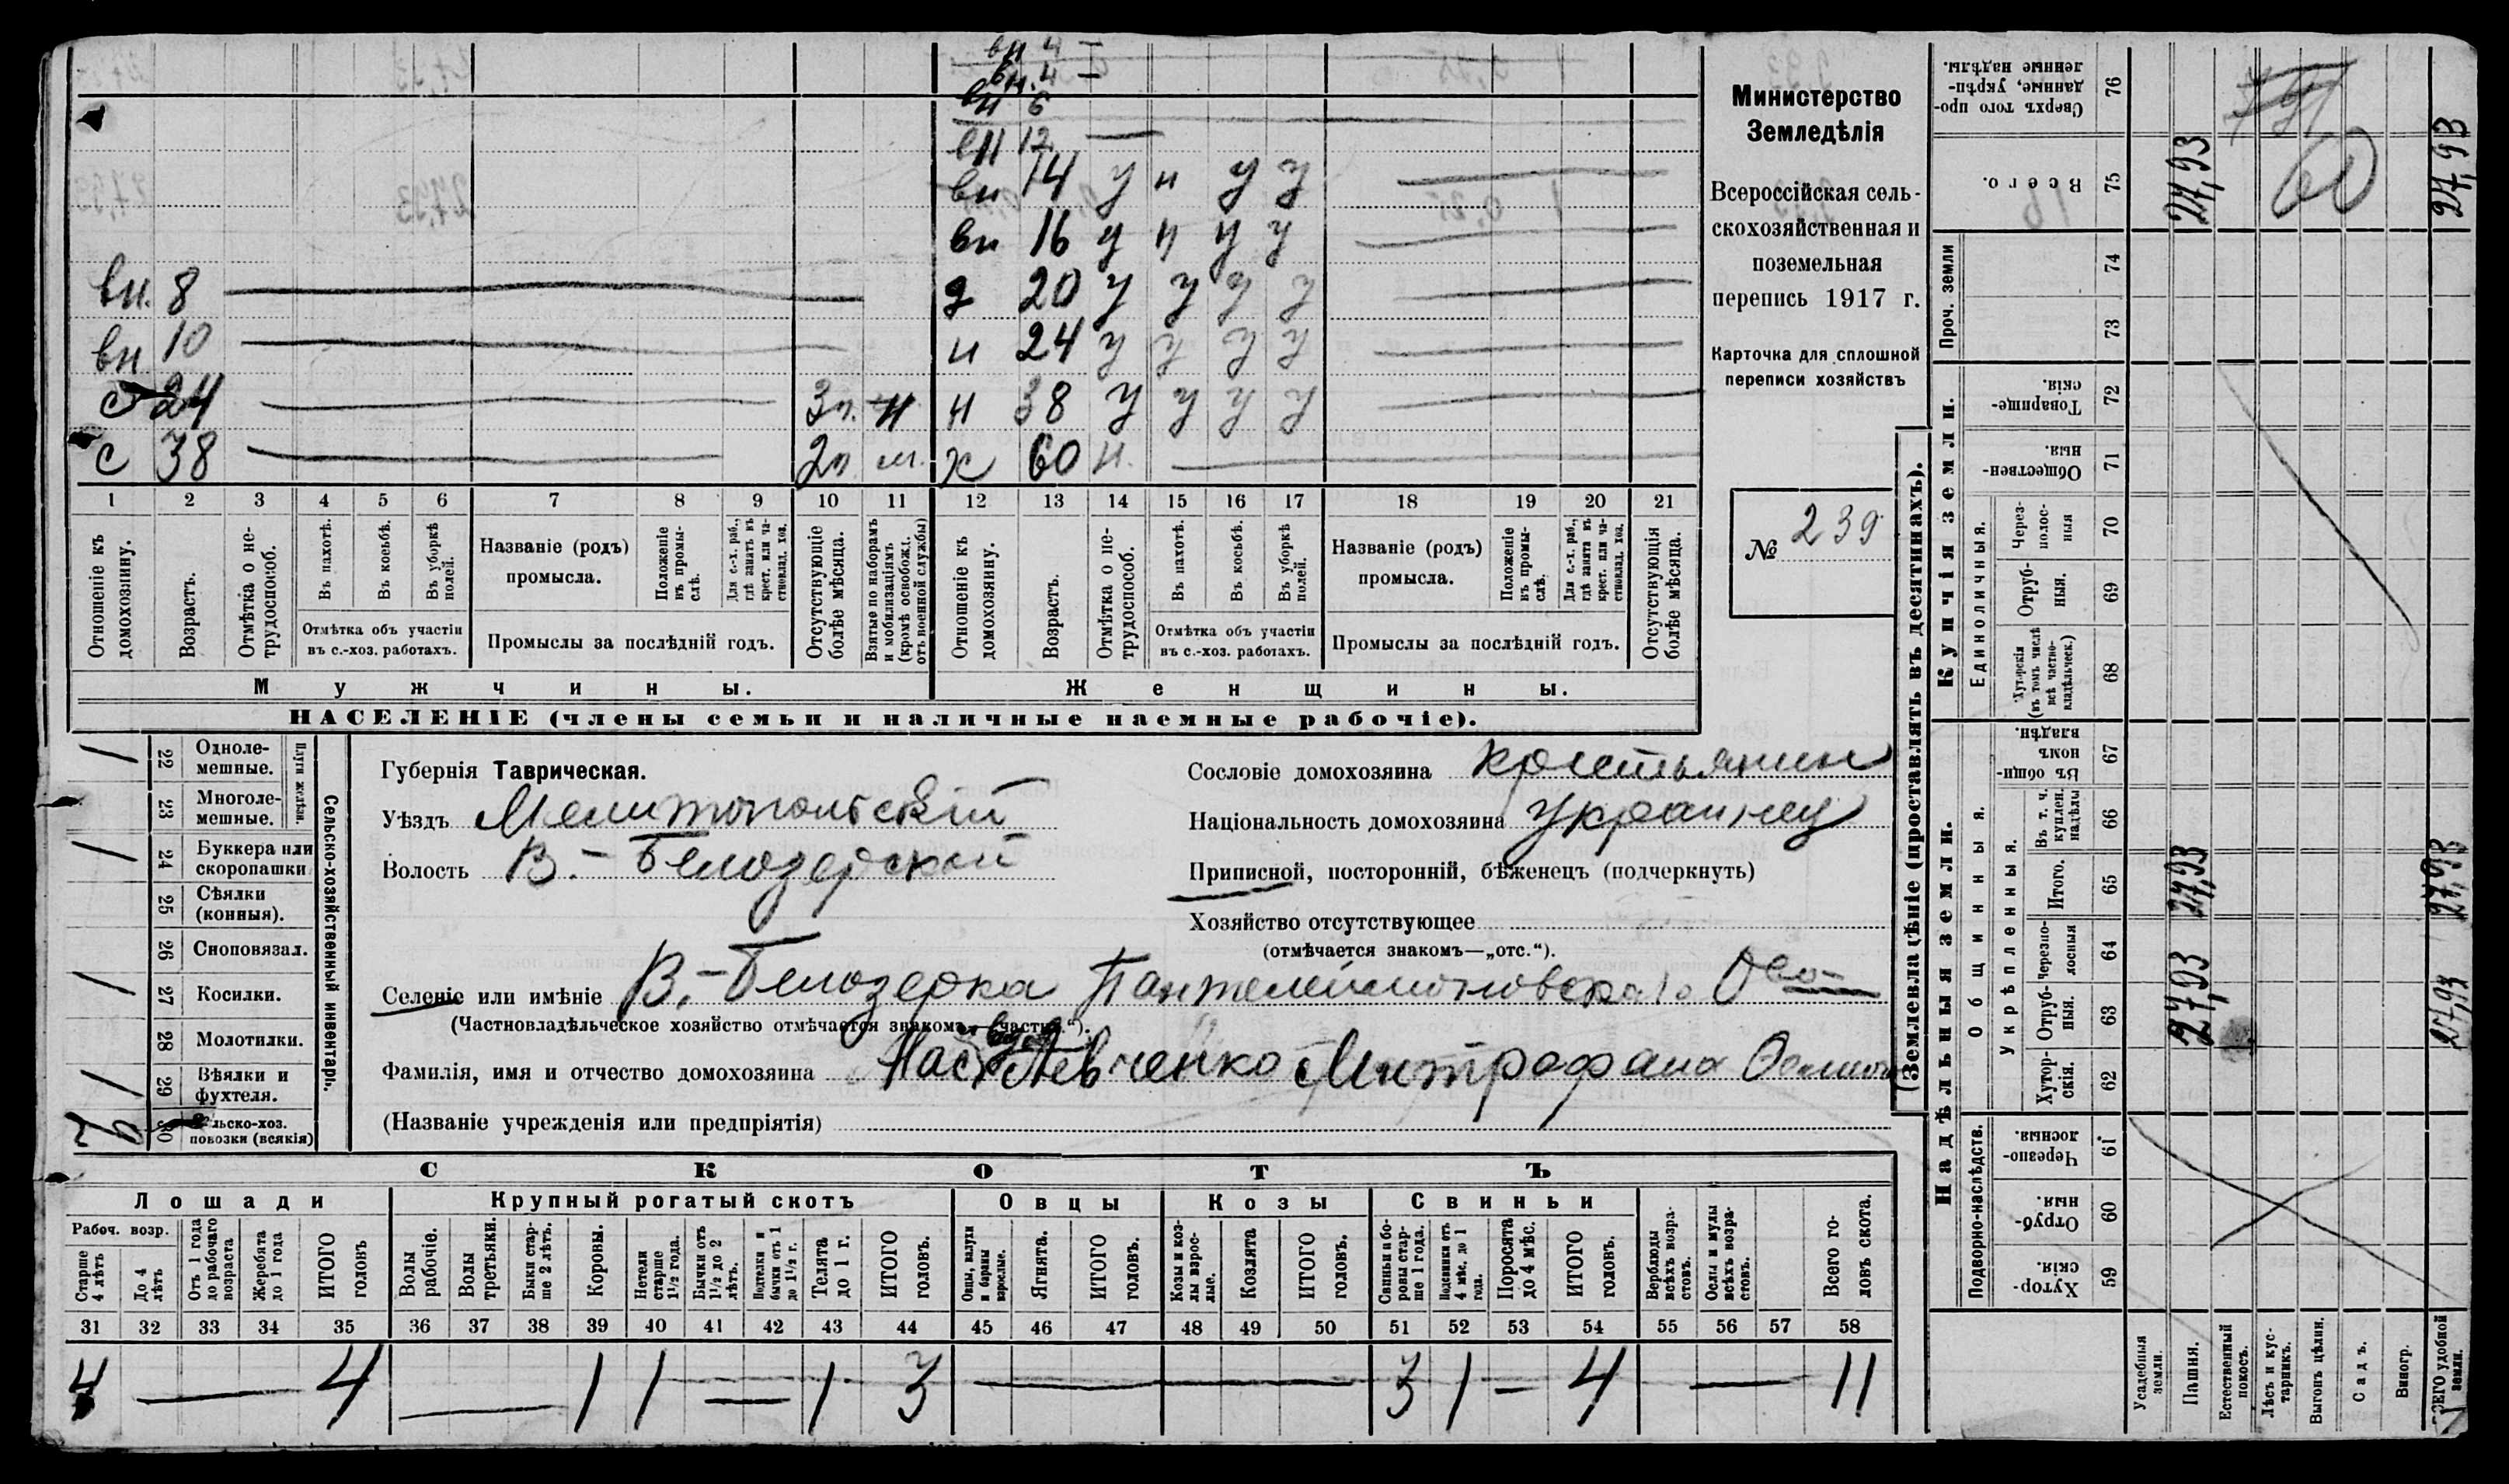 вн 4 —
вн. 4 —
вн 6
вн 12 —
вн 14 у н у у —
вн 16 у н у у —
вн. 8 — д 20 у у у у —
вн 10 — н 24 у у у у —
с 24 — 3 г. н н 38 у у у у —
с 38 — 2 г. ж 60 н. —
1 2 3 4 5 6 7 8 9 10 11 12 13 14 15 16 17 18 19 20 21
Отношеніе къ домохозяину.
Возрастъ.
Отмѣтка о нетрудоспособ.
Въ пахотѣ.
Въ косьбѣ.
Въ уборкѣ полей.
Отмѣтка объ участіи въ с.-хоз. работахъ.
Названіе (родъ) промысла.
Положеніе въ промыслѣ.
Для с.-х. раб., гдѣ занятъ въ крест. или частновлад. хоз.
Промыслы за послѣдній годъ.
Отсутствующіе болѣе мѣсяца.
Взятые по наборамъ и мобилизаціямъ (кромѣ освобожд. отъ военной службы)
Отношеніе къ домохозяину.
Возрастъ.
Отмѣтка о нетрудоспособ.
Въ пахотѣ.
Въ косьбѣ.
Въ уборкѣ полей.
Отмѣтка объ участіи въ с.-хоз. работахъ.
Названіе (родъ) промысла.
Положеніе въ промыслѣ.
Для с.-х. раб., гдѣ занята въ крест. или частновлад. хоз.
Промыслы за послѣдній годъ.
Отсутствующія болѣе мѣсяца.
Мужчины. Женщины.
НАСЕЛЕНІЕ (члены семьи и наличные наемные рабочіе).
Министерство
Земледѣлія
Всероссійская сель-
скохозяйственная и
поземельная
перепись 1917 г.
Карточка для сплошной
переписи хозяйствъ
№ 239
Сельско-хозяйственный инвентарь.
Плуги желѣзн.
22 Одноле-мешные. 1
23 Многоле-мешные.
24 Буккера или скоропашки 1
25 Сѣялки (конныя).
26 Сноповязал.
27 Косилки. 1
28 Молотилки.
29 Вѣялки и фухтеля. 1
30 Сельско-хоз. повозки (всякія)
Губернія Таврическая.
Уѣздъ Мелитопольскій
Волость В.-Белозерской
Сословіе домохозяина крестьянин
Національность домохозяина украинец
Приписной, посторонній, бѣженецъ (подчеркнуть)
Хозяйство отсутствующее
(отмѣчается знакомъ—„отс.“).
Селеніе или имѣніе В.-Белозерка Пантелеймоновскаго Об-
(Частновладѣльческое хозяйство отмѣчается знакомъ—„частн.“).
Фамилія, имя и отчество домохозяина Левченко Митрофана
(Названіе учрежденія или предпріятія)
СКОТЪ
Лошади Крупный рогатый скотъ Овцы Козы Свиньи
Рабоч. возр.
Старше 4 лѣтъ
До 4 лѣтъ
Отъ 1 года до рабочаго возраста
Жеребята до 1 года
ИТОГО головъ
Волы рабочіе.
Волы третьяки.
Быки старше 2 лѣтъ.
Коровы.
Нетели старше 1½ года.
Бычки отъ 1½ до 2 лѣтъ.
Подтелки и бычки отъ 1 до 1½ г.
Телята до 1 г.
ИТОГО головъ.
Овцы, валухи и бараны взрослые.
Ягнята.
ИТОГО головъ.
Козы и козлы взрослые.
Козлята
ИТОГО головъ.
Свиньи и боровы старше 1 года.
Подсвинки отъ 4 мѣс. до 1 года.
Поросята до 4 мѣс.
ИТОГО головъ.
Верблюды всѣхъ возрастовъ.
Ослы и мулы всѣхъ возрастовъ.
Всего головъ скота.
31 32 33 34 35 36 37 38 39 40 41 42 43 44 45 46 47 48 49 50 51 52 53 54 55 56 57 58
4 — 4 — 1 1 — 1 3 — 3 1 — 4 — 11
(Землевладѣніе (проставлять въ десятинахъ).
Надѣльныя земли. Купчія земли. Проч. земли
Подворно-наслѣдств.
Общинныя.
Укрѣпленныя.
Единоличныя.
59 Хутор-скія.
60 Отруб-ныя.
61 Черезпо-лосныя.
62 Хутор-скія.
63 Отруб-ныя.
64 Черезпо-лосныя
65 Итого.
66 Въ т. ч. куплен. надѣлы
67 Въ общин-номъ владѣн.
68 Хуторскія (въ томъ числѣ всѣ частно-владѣльческ.)
69 Отруб-ныя.
70 Через-полос-ныя
71 Обществен-ныя.
72 Товарище-скія.
73
74
75 Всего.
76 Сверхъ того про-данные, укрѣп-ленные надѣлы.
Усадебныя земли.
Пашня. 27,93 27,93 27,93
Естественный покосъ.
Лѣсъ и кус-тарникъ.
Выгонъ цѣлин.
Садъ.
Виногр.
ВСЕГО удобной земли. 27,93 27,93 27,93
60